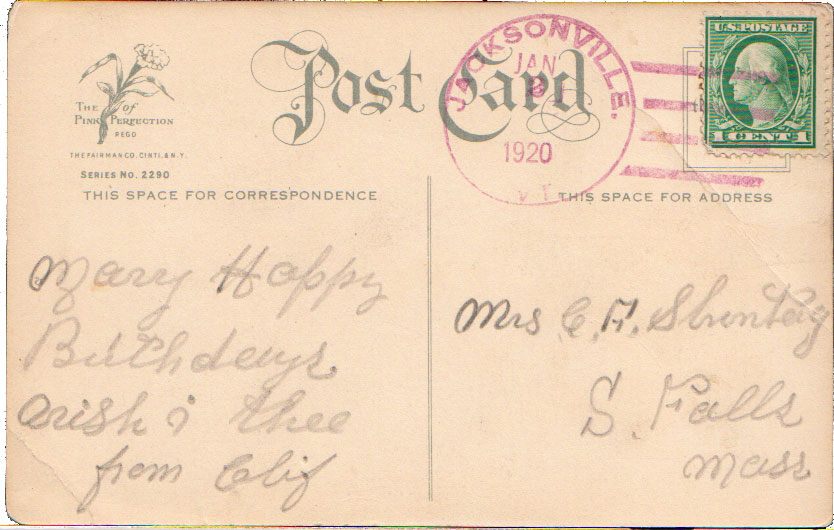 Post Card
THE PINK of PERFECTION
REGD
THE FAIRMAN CO. CINTI. & N.Y.
SERIES No. 2290
JACKSONVILLE,
JAN
8
1920
VT.
U.S. POSTAGE
1 CENT 1
THIS SPACE FOR CORRESPONDENCE
THIS SPACE FOR ADDRESS
Mary Happy
Birthdays
Wish i thee
from Clif
Mrs C. A.
S. Falls
Mass